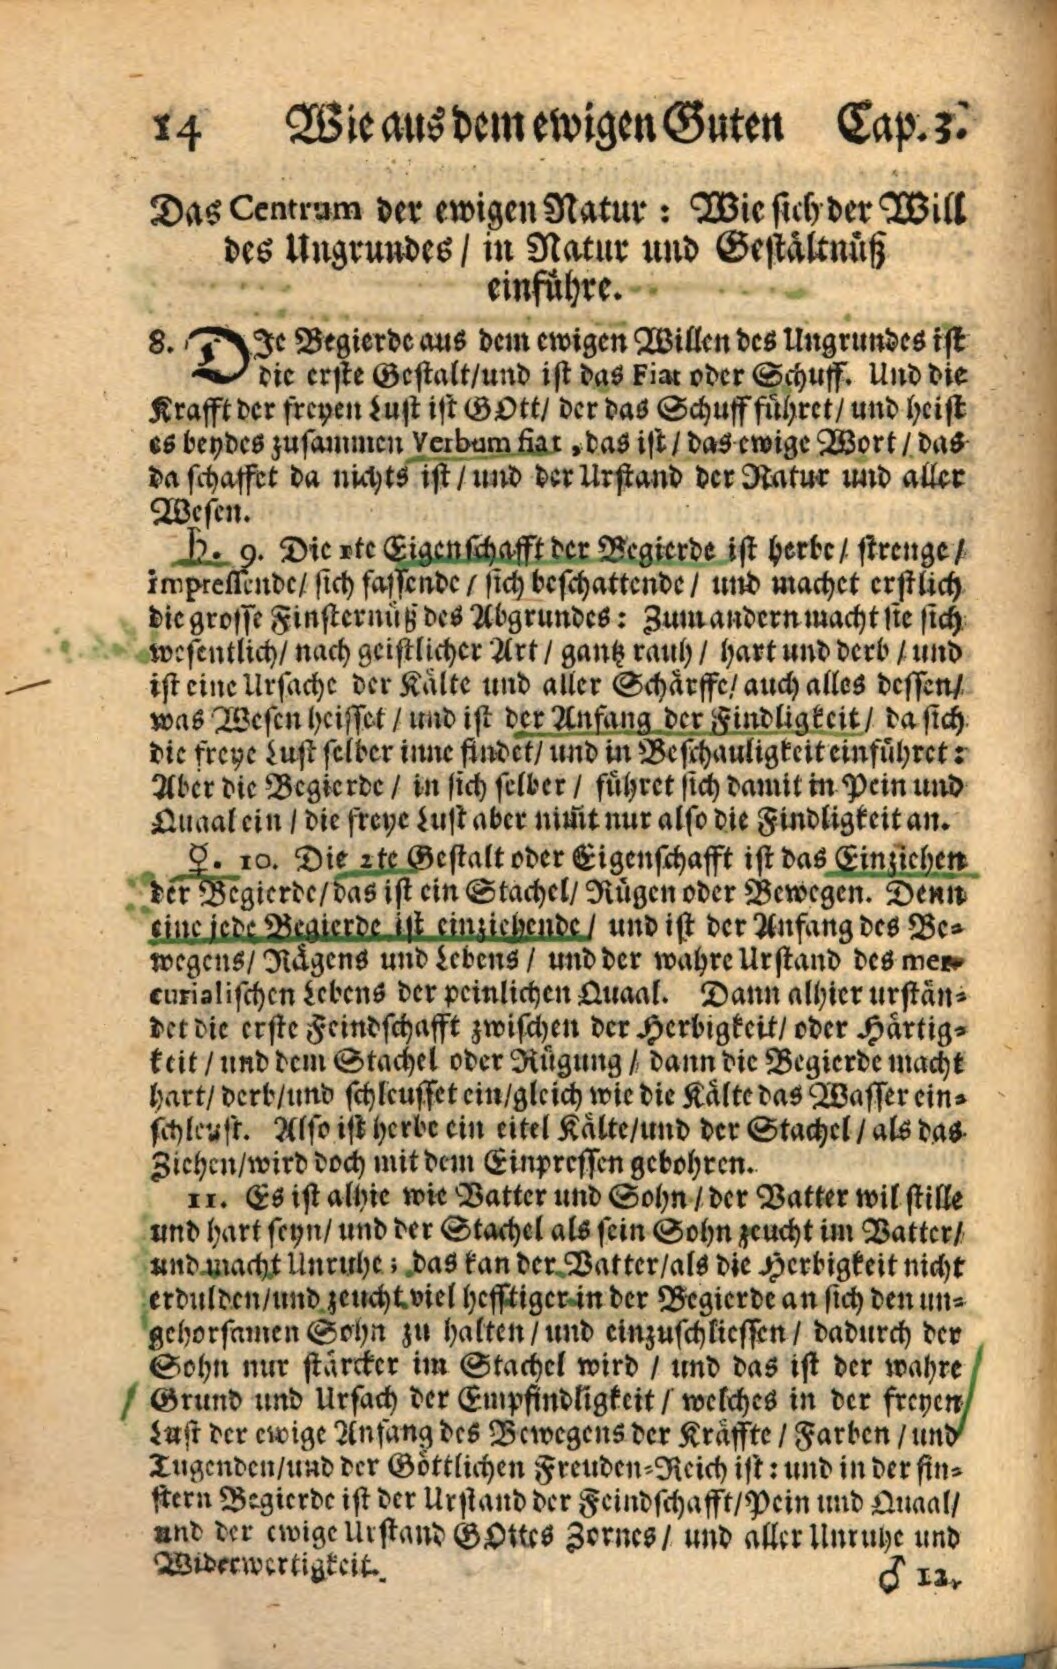 14 Wie aus dem ewigen Guten Cap. 3.
Das Centrum der ewigen Natur: Wie sich der Will
des Ungrundes / in Natur und Gestältnüß
einführe.
8. DIe Begierde aus dem ewigen Willen des Ungrundes ist
die erste Gestalt/und ist das Fiat oder Schuff. Und die
Krafft der freyen Lust ist GOtt/ der das Schuff führet/ und heist
es beydes zusammen Verbum fiat, das ist / das ewige Wort / das
da schaffet da nichts ist / und der Urstand der Natur und aller
Wesen.
♄. 9. Die 1te Eigenschafft der Begierde ist herbe / strenge /
impressende/ sich fassende / sich beschattende / und machet erstlich
die grosse Finsternüß des Abgrundes: Zum andern macht sie sich
wesentlich/ nach geistlicher Art / gantz rauh / hart und derb / und
ist eine Ursache der Kälte und aller Schärffe/ auch alles dessen/
was Wesen heisset / und ist der Anfang der Findligkeit/ da sich
die freye Lust selber inne findet/ und in Beschauligkeit einführet:
Aber die Begierde / in sich selber / führet sich damit in Pein und
Quaal ein / die freye Lust aber nim̃t nur also die Findligkeit an.
☿. 10. Die 2te Gestalt oder Eigenschafft ist das Einziehen
der Begierde/das ist ein Stachel/ Rügen oder Bewegen. Denn
eine jede Begierde ist einziehende/ und ist der Anfang des Be-
wegens/ Rägens und Lebens / und der wahre Urstand des mer-
curialischen Lebens der peinlichen Quaal. Dann alhier urstän-
det die erste Feindschafft zwischen der Herbigkeit/ oder Härtig-
keit / und dem Stachel oder Rügung / dann die Begierde macht
hart/ derb/und schleusset ein/gleich wie die Kälte das Wasser ein-
schleust. Also ist herbe ein eitel Kälte/und der Stachel / als das
Ziehen/wird doch mit dem Einpressen gebohren.
11. Es ist alhie wie Vatter und Sohn / der Vatter wil stille
und hart seyn/ und der Stachel als sein Sohn zeucht im Vatter/
und macht Unruhe; das kan der Vatter/als die Herbigkeit nicht
erdulden/und zeucht viel hefftiger in der Begierde an sich den un-
gehorsamen Sohn zu halten / und einzuschliessen / dadurch der
Sohn nur stärcker im Stachel wird / und das ist der wahre
Grund und Ursach der Empfindligkeit / welches in der freyen
Lust der ewige Anfang des Bewegens der Kräffte / Farben / und
Tugenden/und der Göttlichen Freuden-Reich ist: und in der fin-
stern Begierde ist der Urstand der Feindschafft/Pein und Quaal/
und der ewige Urstand GOttes Zornes / und aller Unruhe und
Widerwertigkeit.
♂ 12.